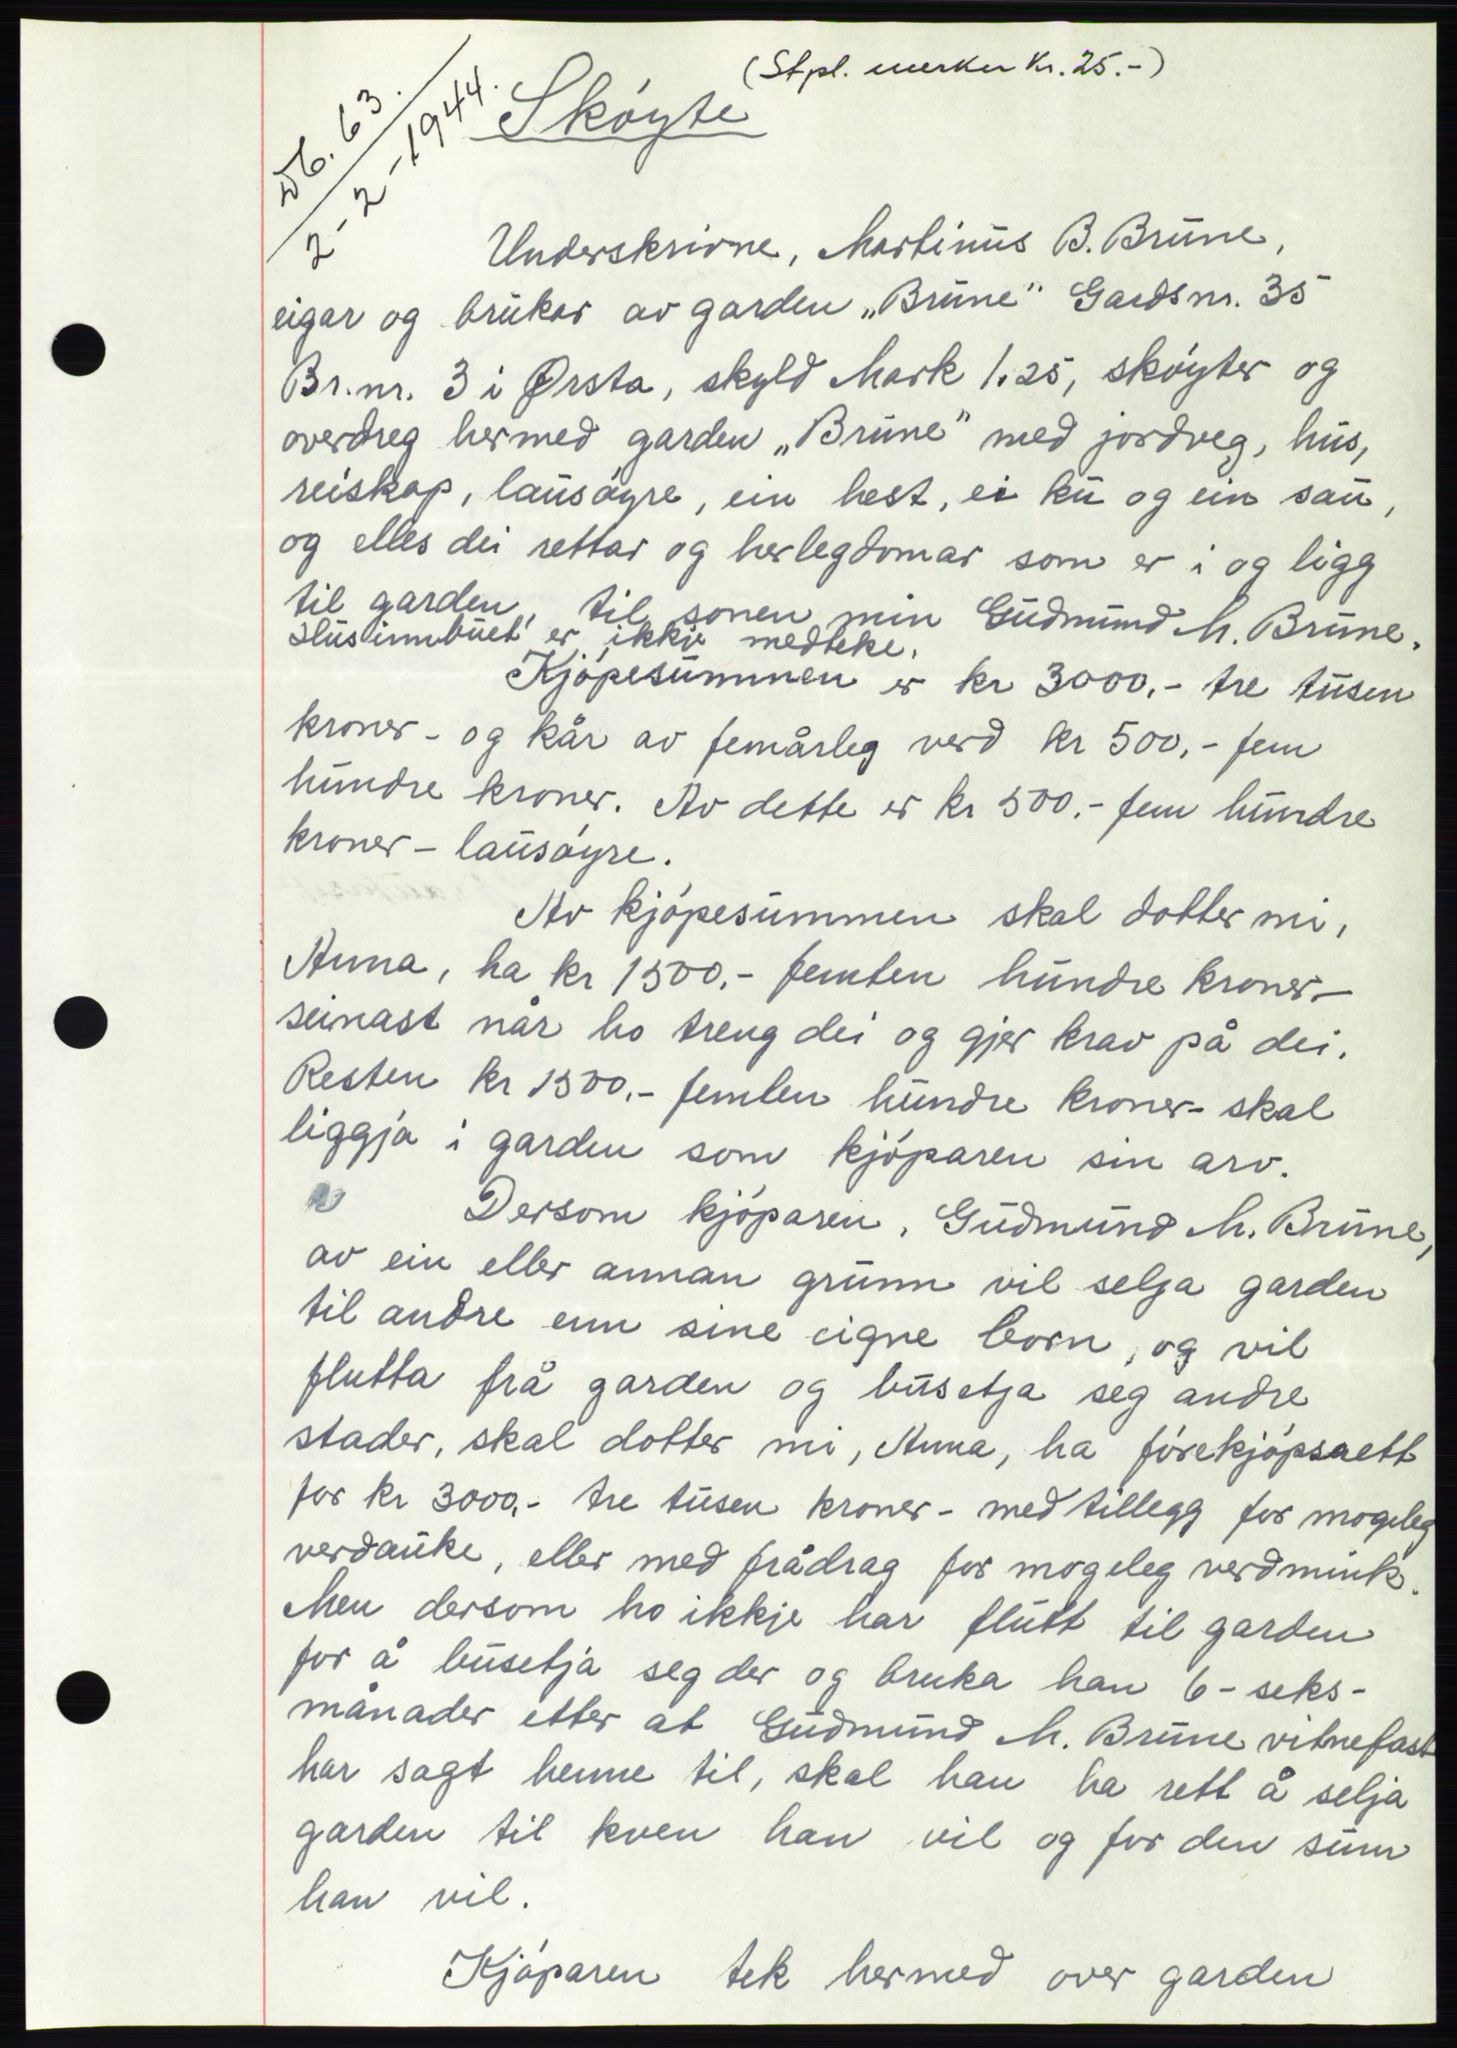 (Stpl. merker kr. 25.-)
Db. 63.
2-2-1944.
Skøyte
Underskrivne, Martinus B. Brune,
eigar og brukar av garden „Brune" Gardsnr. 35
Br.nr. 3 i Ørsta, skyld Mark 1.25, skøyter og
overdreg hermed garden „Brune" med jordveg, hus,
reiskap, lausøyre, ein hest, ei ku og ein sau,
og elles dei rettar og herlegdomar som er i og ligg
til garden, til sonen min Gudmund M. Brune.
Husinnbuet er ikkje medteke.
Kjøpesummen er kr 3000,- tre tusen
kroner - og kår av femårleg verd kr 500,- fem
hundre kroner. Av dette er kr 500.- fem hundre
kroner - lausøyre.
Av kjøpesummen skal dotter mi,
Anna, ha kr 1500,- femten hundre kroner -
seinast når ho treng dei og gjer krav på dei.
Resten kr 1500.- femten hundre kroner - skal
liggja i garden som kjøparen sin arv.
Dersom kjøparen, Gudmund M. Brune,
av ein eller annan grunn vil selja garden
til andre enn sine eigne born, og vil
flutta frå garden og busetja seg andre
stader, skal dotter mi, Anna, ha fórekjøpsrett
for kr 3000,- tre tusen kroner - med tillegg for mogeleg
verdauke, eller med frådrag for mogeleg verdmink.
Men dersom ho ikkje har flutt til garden
for å busetja seg der og bruka han 6 - seks -
månader etter at Gudmund M. Brune vitnefast
har sagt henne til, skal han ha rett å selja
garden til kven han vil og for den sum
han vil.
Kjøparen tek hermed over garden